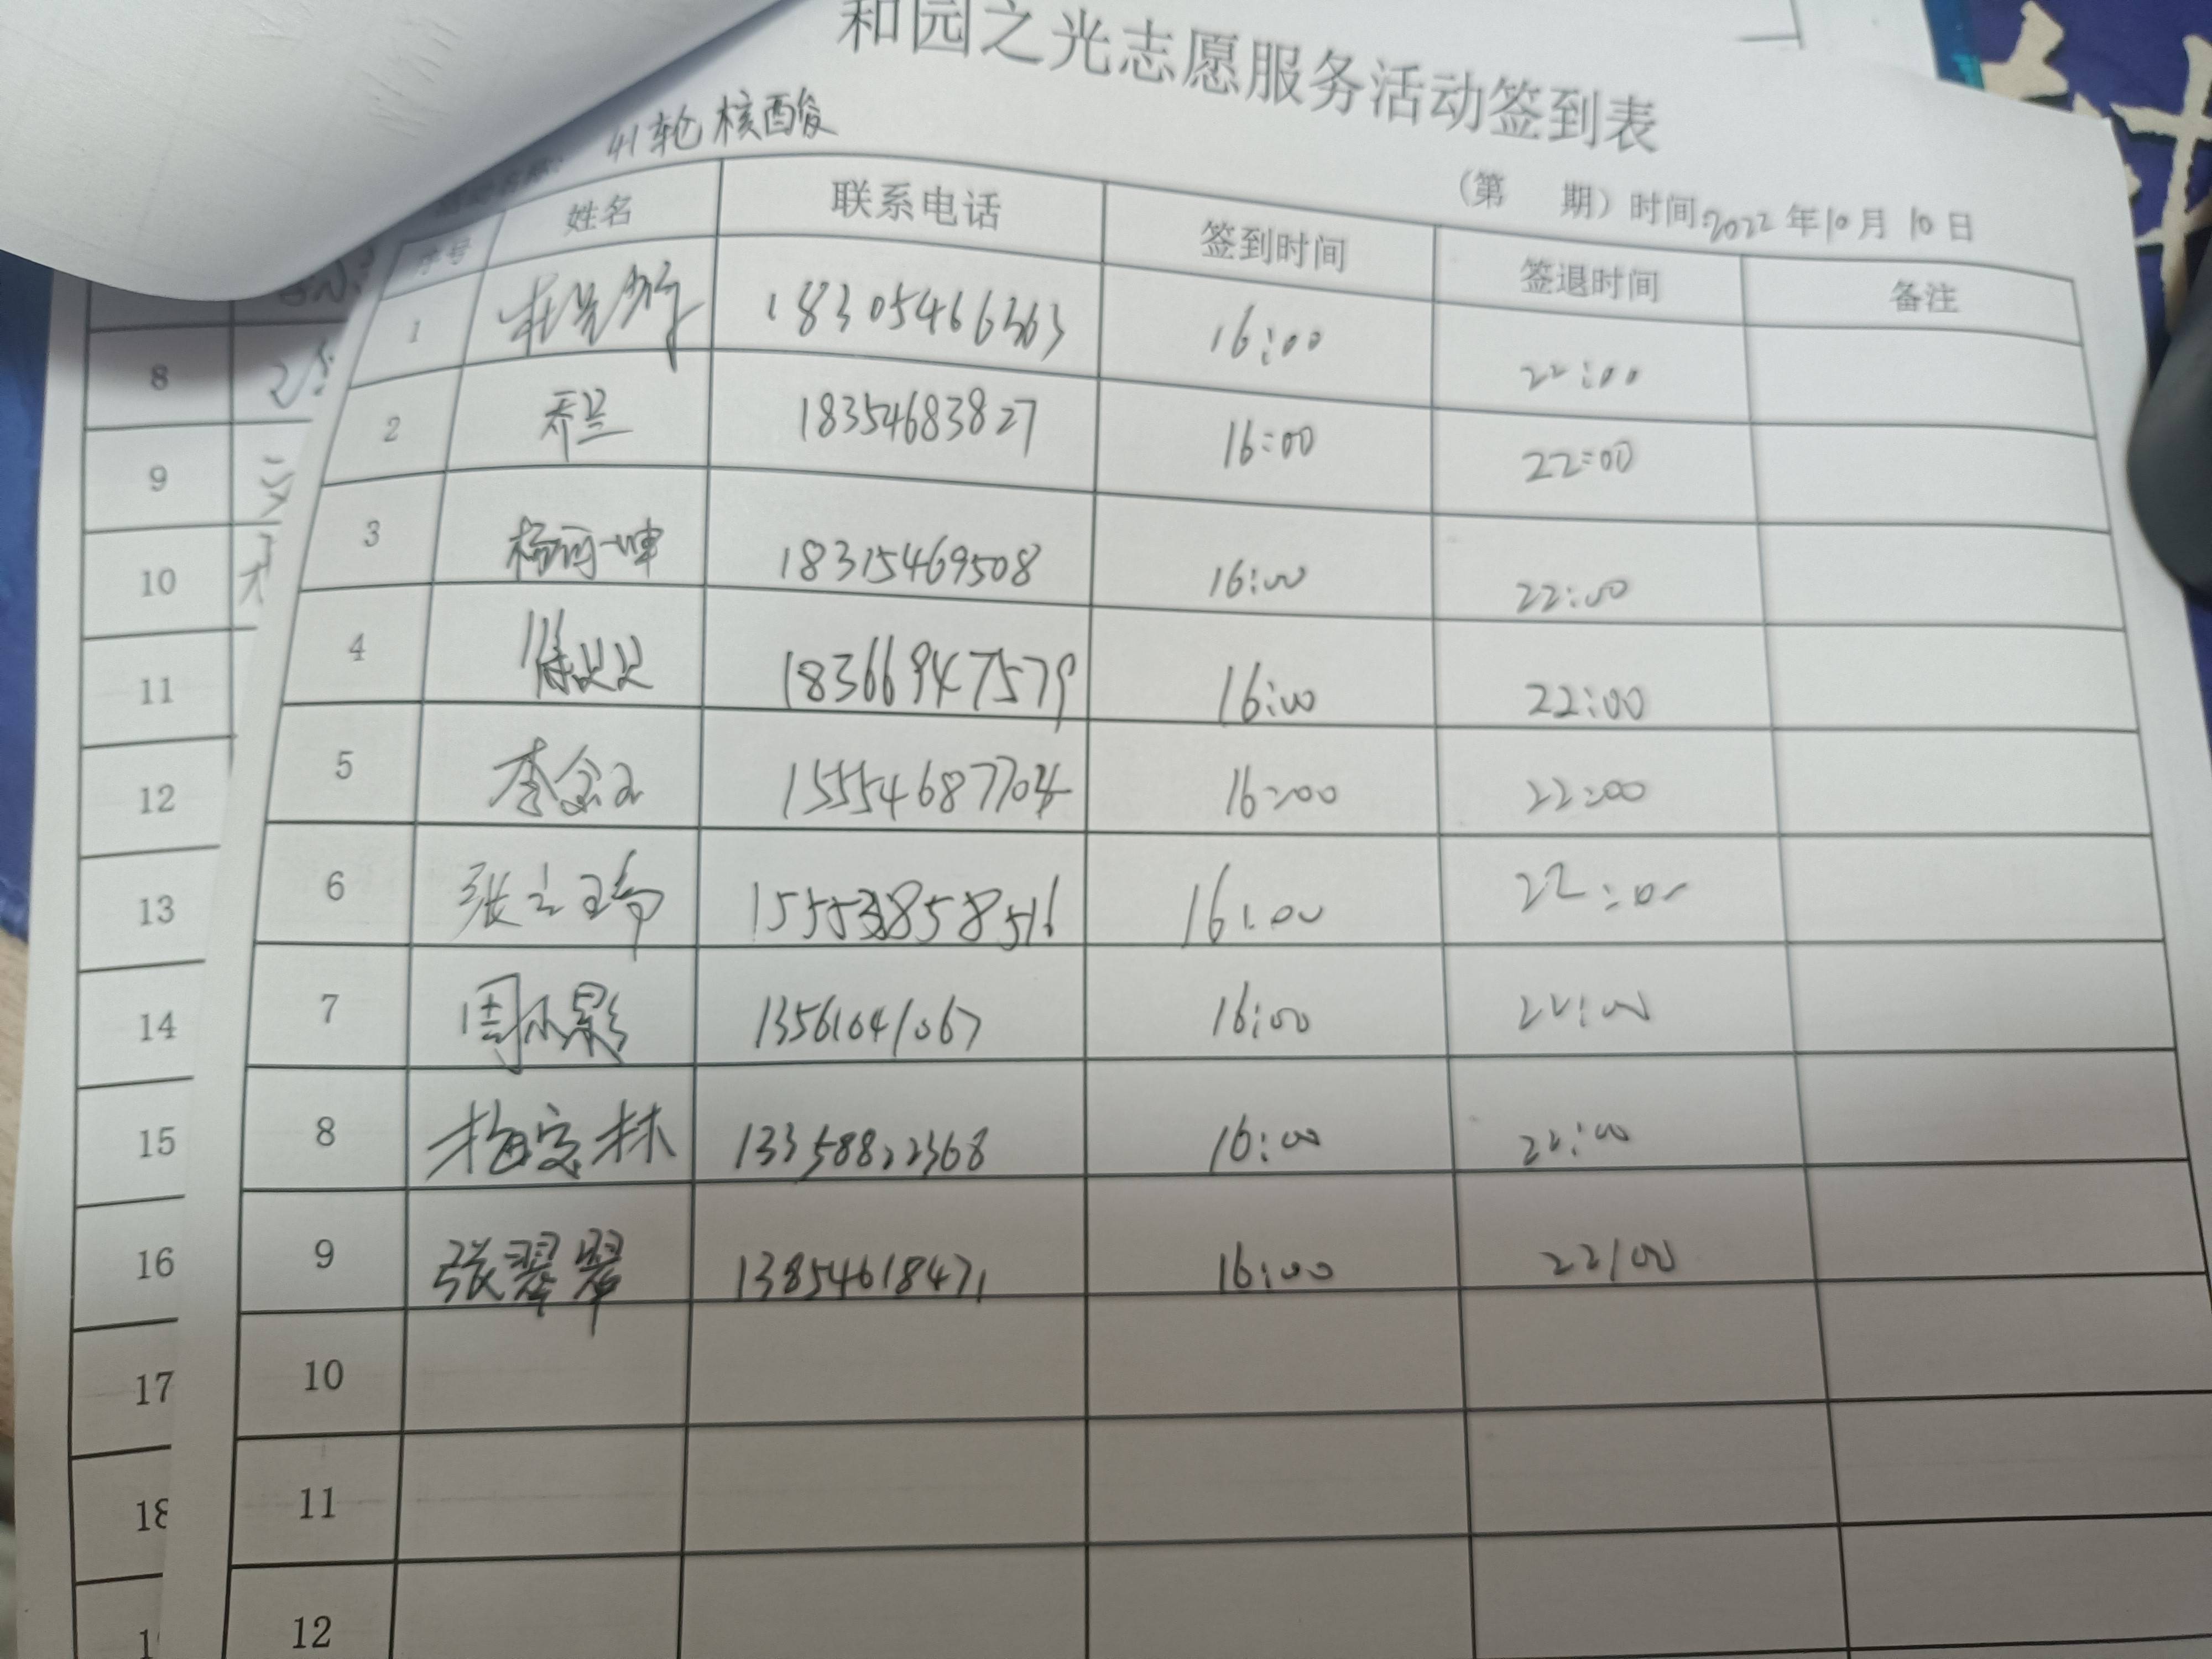 和园之光志愿服务活动签到表
41轮核酸
(第 期) 时间:2022年10月10日
序号 姓名 联系电话 签到时间 签退时间 备注
1 18305466363 16:00 22:00
2 乔兰 18354683827 16:00 22:00
3 18315469508 16:00 22:00
4 徐双双 18366947579 16:00 22:00
5 李金玉 15554687704 16:00 22:00
6 16:00 22:00
7 周小影 13561041067 16:00 22:00
8 梅宝林 16:00 22:00
9 张翠翠 13854618471 16:00 22:00
10
11
12
8
9
10
11
12
13
14
15
16
17
18